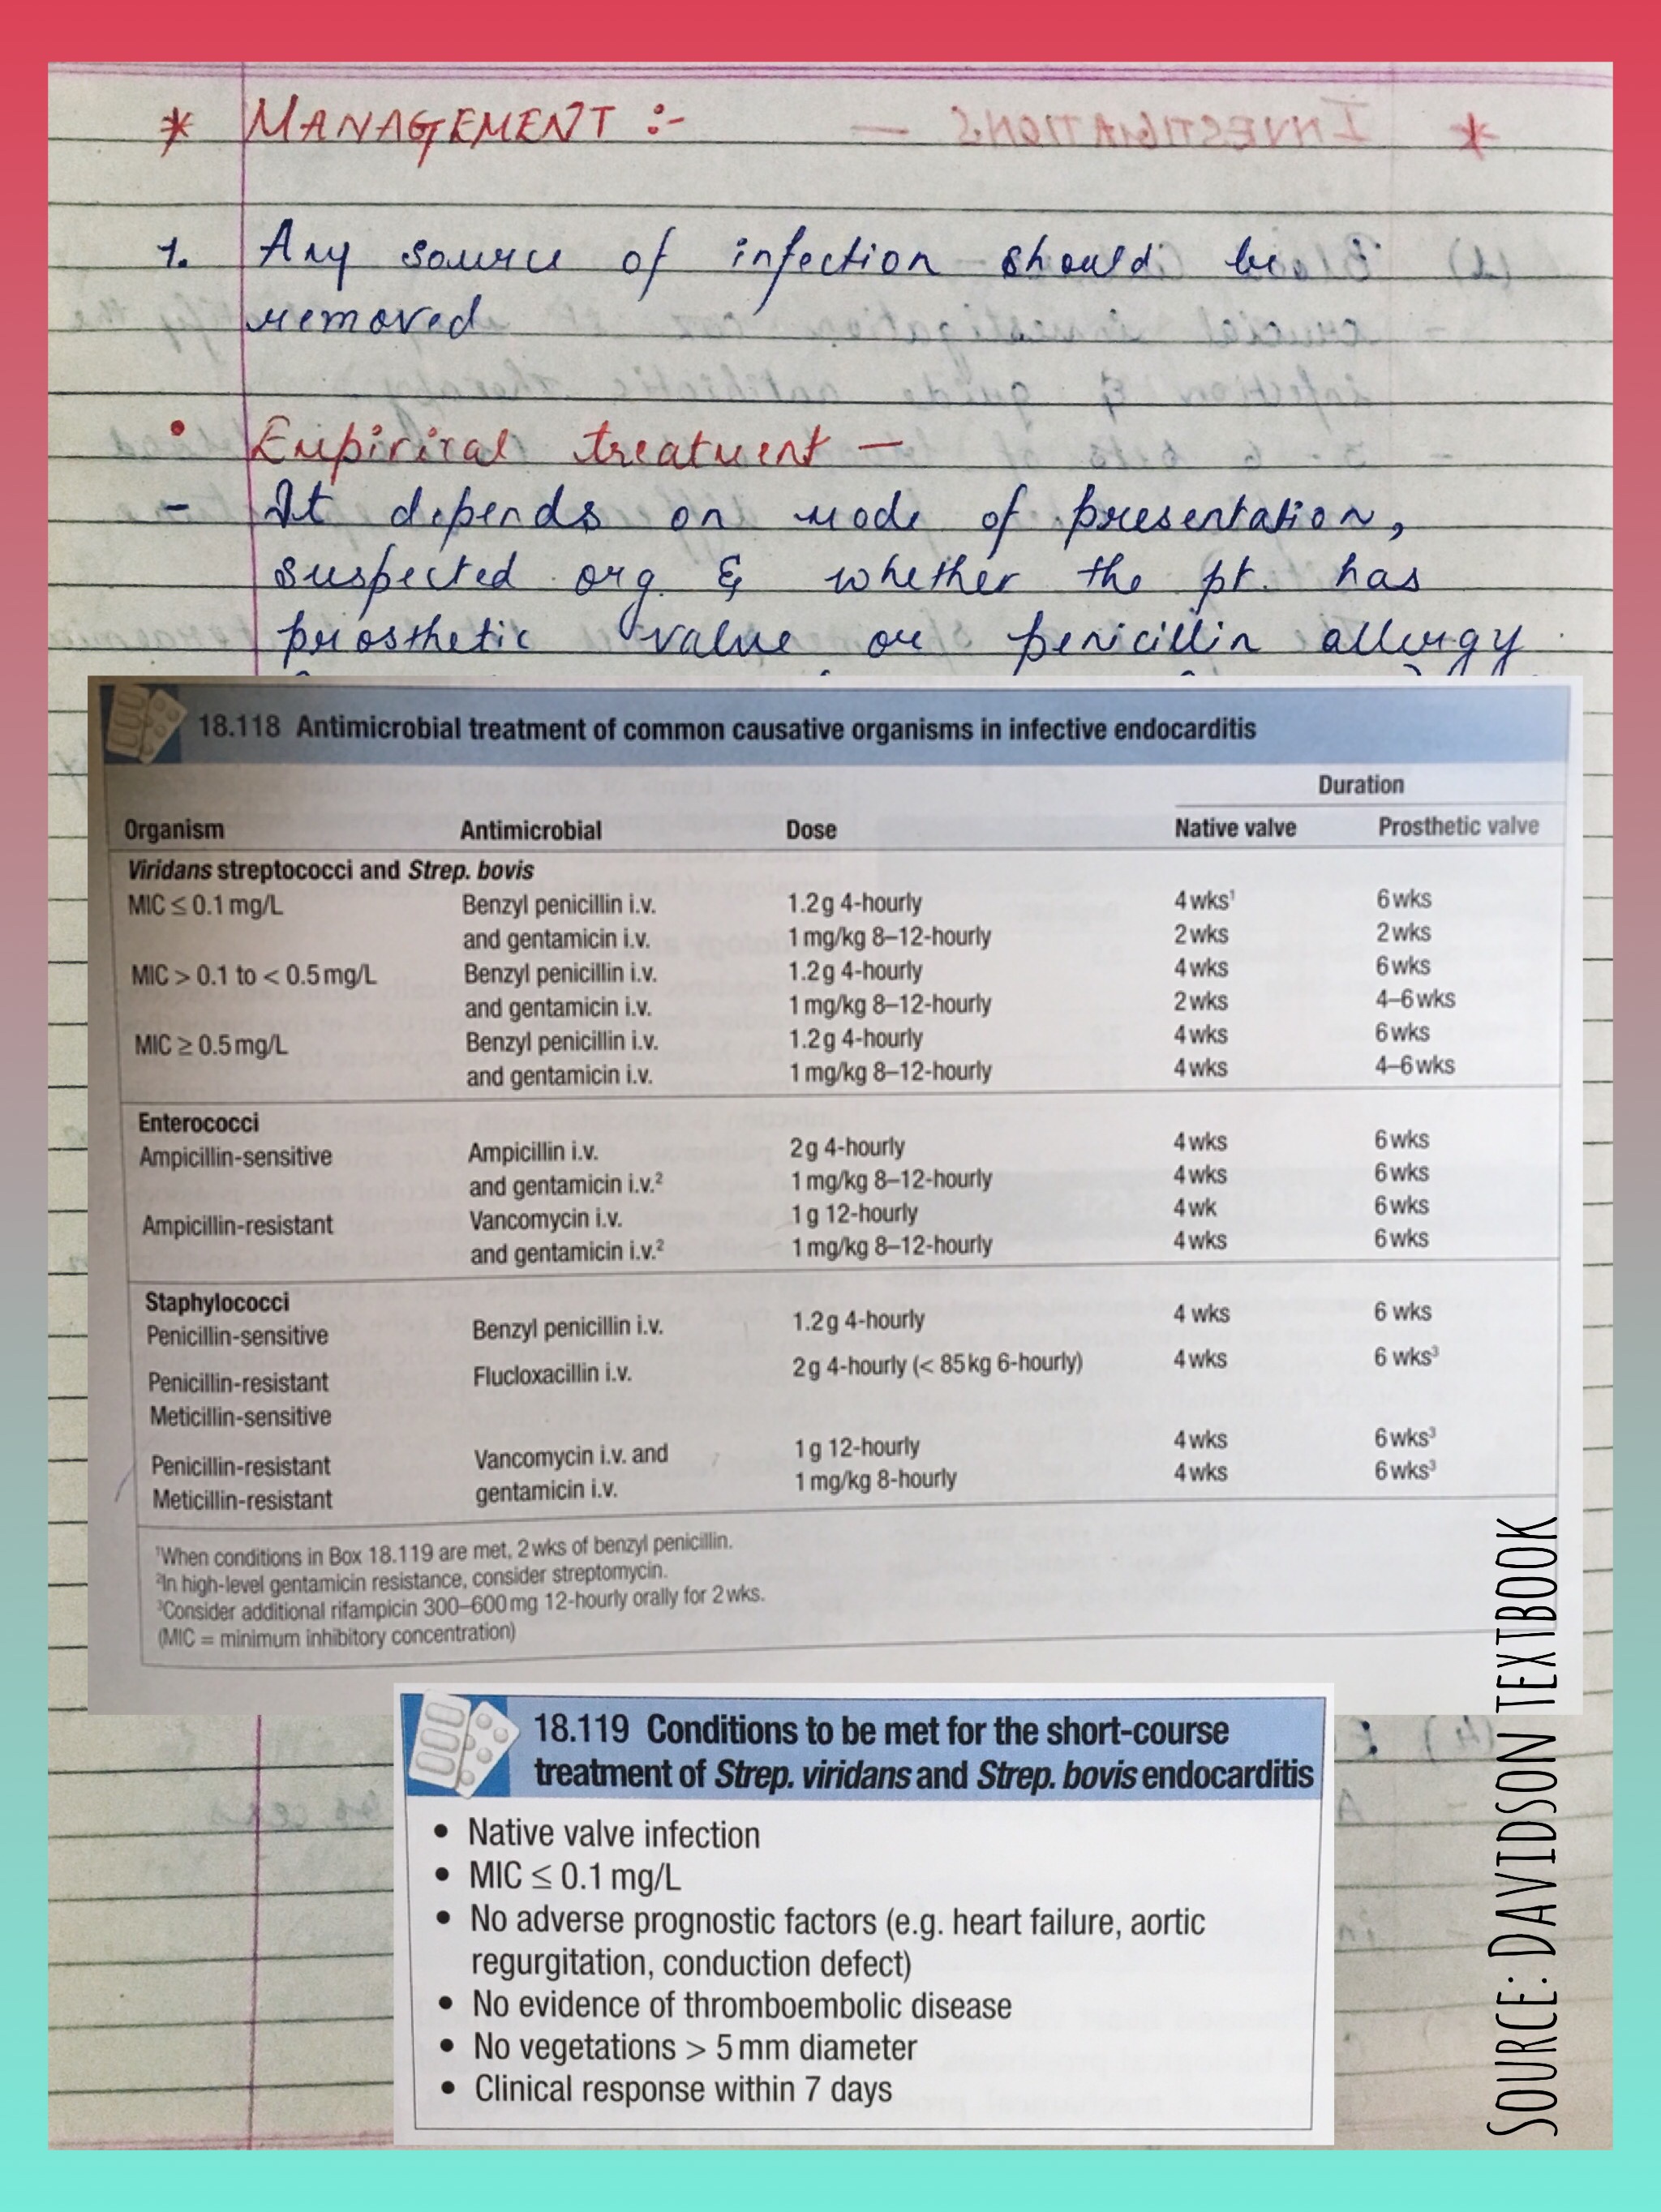 * MANAGEMENT :-
1. Any source of infection should be
removed
• Empirical treatment —
- It depends on mode of presentation,
suspected org. & whether the pt. has
prosthetic valve or penicillin allergy
18.118 Antimicrobial treatment of common causative organisms in infective endocarditis
Duration
Organism Antimicrobial Dose Native valve Prosthetic valve
Viridans streptococci and Strep. bovis
MIC ≤ 0.1 mg/L Benzyl penicillin i.v. 1.2 g 4-hourly 4 wks¹ 6 wks
and gentamicin i.v. 1 mg/kg 8–12-hourly 2 wks 2 wks
MIC > 0.1 to < 0.5 mg/L Benzyl penicillin i.v. 1.2 g 4-hourly 4 wks 6 wks
and gentamicin i.v. 1 mg/kg 8–12-hourly 2 wks 4–6 wks
MIC ≥ 0.5 mg/L Benzyl penicillin i.v. 1.2 g 4-hourly 4 wks 6 wks
and gentamicin i.v. 1 mg/kg 8–12-hourly 4 wks 4–6 wks
Enterococci
Ampicillin-sensitive Ampicillin i.v. 2 g 4-hourly 4 wks 6 wks
and gentamicin i.v.² 1 mg/kg 8–12-hourly 4 wks 6 wks
Ampicillin-resistant Vancomycin i.v. 1 g 12-hourly 4 wk 6 wks
and gentamicin i.v.² 1 mg/kg 8–12-hourly 4 wks 6 wks
Staphylococci
Penicillin-sensitive Benzyl penicillin i.v. 1.2 g 4-hourly 4 wks 6 wks
Penicillin-resistant Flucloxacillin i.v. 2 g 4-hourly (< 85 kg 6-hourly) 4 wks 6 wks³
Meticillin-sensitive
Penicillin-resistant Vancomycin i.v. and 1 g 12-hourly 4 wks 6 wks³
Meticillin-resistant gentamicin i.v. 1 mg/kg 8-hourly 4 wks 6 wks³
¹When conditions in Box 18.119 are met, 2 wks of benzyl penicillin.
²In high-level gentamicin resistance, consider streptomycin.
³Consider additional rifampicin 300–600 mg 12-hourly orally for 2 wks.
(MIC = minimum inhibitory concentration)
18.119 Conditions to be met for the short-course
treatment of Strep. viridans and Strep. bovis endocarditis
• Native valve infection
• MIC ≤ 0.1 mg/L
• No adverse prognostic factors (e.g. heart failure, aortic
regurgitation, conduction defect)
• No evidence of thromboembolic disease
• No vegetations > 5 mm diameter
• Clinical response within 7 days
SOURCE: DAVIDSON TEXTBOOK